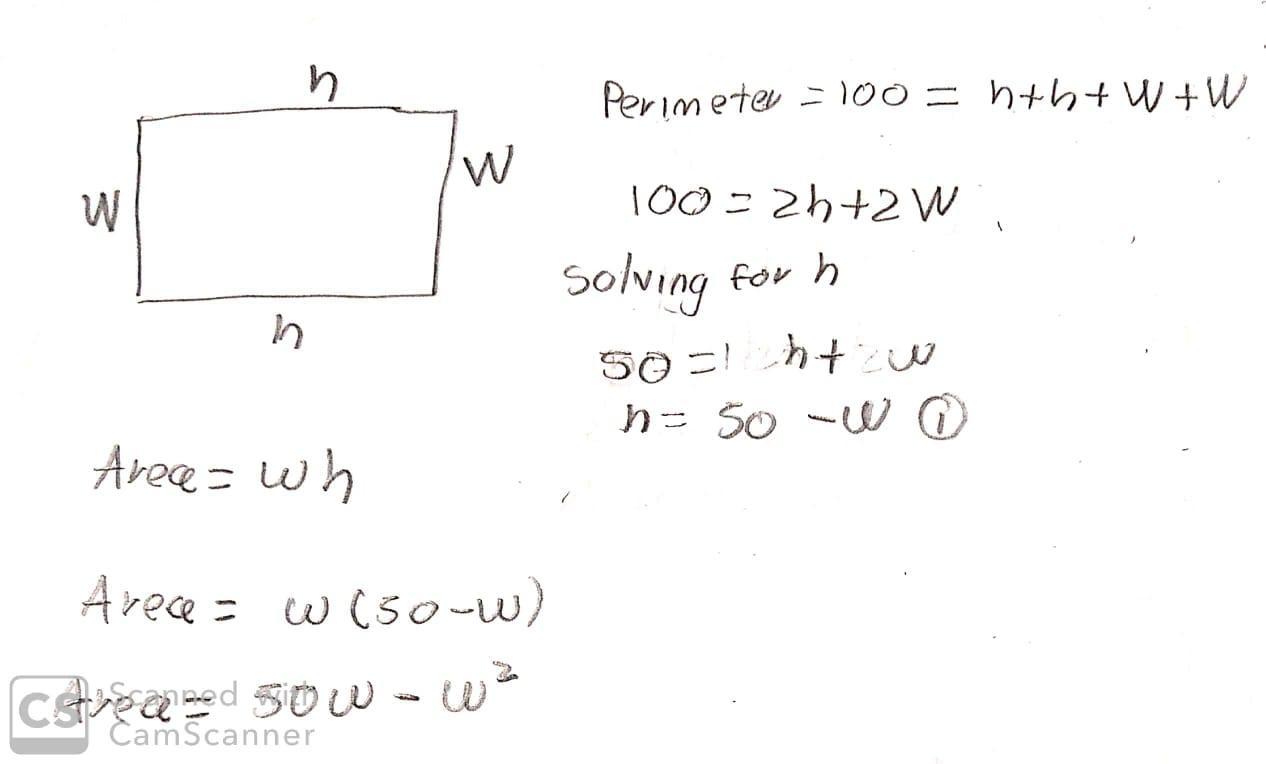 h
W
W
h
Perimeter = 100 = h+h+W+W
100 = 2h+2W
Solving for h
50 = h+ w
h = 50 - w ①
Area = wh
Area = w(50-w)
Area = 50w - w²
CS Scanned with
CamScanner